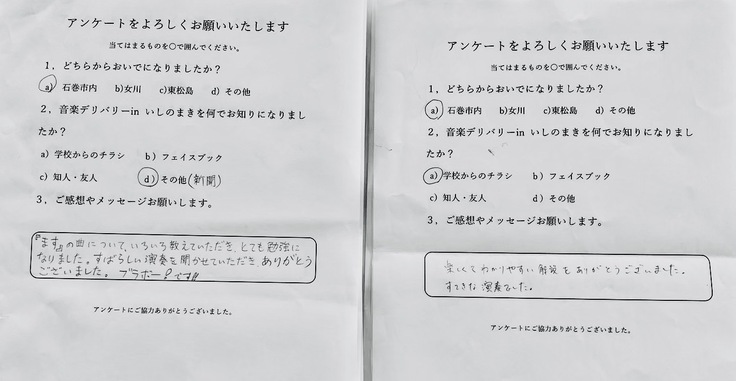 アンケートをよろしくお願いいたします
当てはまるものを〇で囲んでください。
1，どちらからおいでになりましたか？
a) 石巻市内 b)女川 c)東松島 d）その他
2，音楽デリバリーin いしのまきを何でお知りになりまし
たか？
a）学校からのチラシ b）フェイスブック
c）知人・友人 d）その他(新聞)
3，ご感想やメッセージお願いします。
『ます』の曲について、いろいろ教えていただき、とても勉強に
なりました。すばらしい演奏を聞かせていただき、ありがとう
ございました。ブラボー！です!!
アンケートにご協力ありがとうございました。
アンケートをよろしくお願いいたします
当てはまるものを〇で囲んでください。
1，どちらからおいでになりましたか？
a) 石巻市内 b)女川 c)東松島 d）その他
2，音楽デリバリーin いしのまきを何でお知りになりまし
たか？
a)学校からのチラシ b）フェイスブック
c）知人・友人 d）その他
3，ご感想やメッセージお願いします。
楽しくてわかりやすい解説をありがとうございました。
すてきな演奏でした。
アンケートにご協力ありがとうございました。